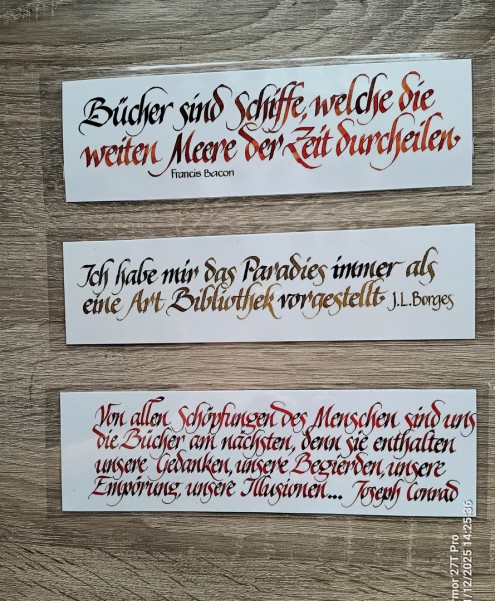 Bücher sind Schiffe, welche die
weiten Meere der Zeit durcheilen.
Francis Bacon
Ich habe mir das Paradies immer als
eine Art Bibliothek vorgestellt. J.L.Borges
Von allen Schöpfungen des Menschen sind uns
die Bücher am nächsten, denn sie enthalten
unsere Gedanken, unsere Begierden, unsere
Empörung, unsere Illusionen... Joseph Conrad
27T Pro
/12/2025 14:25:36